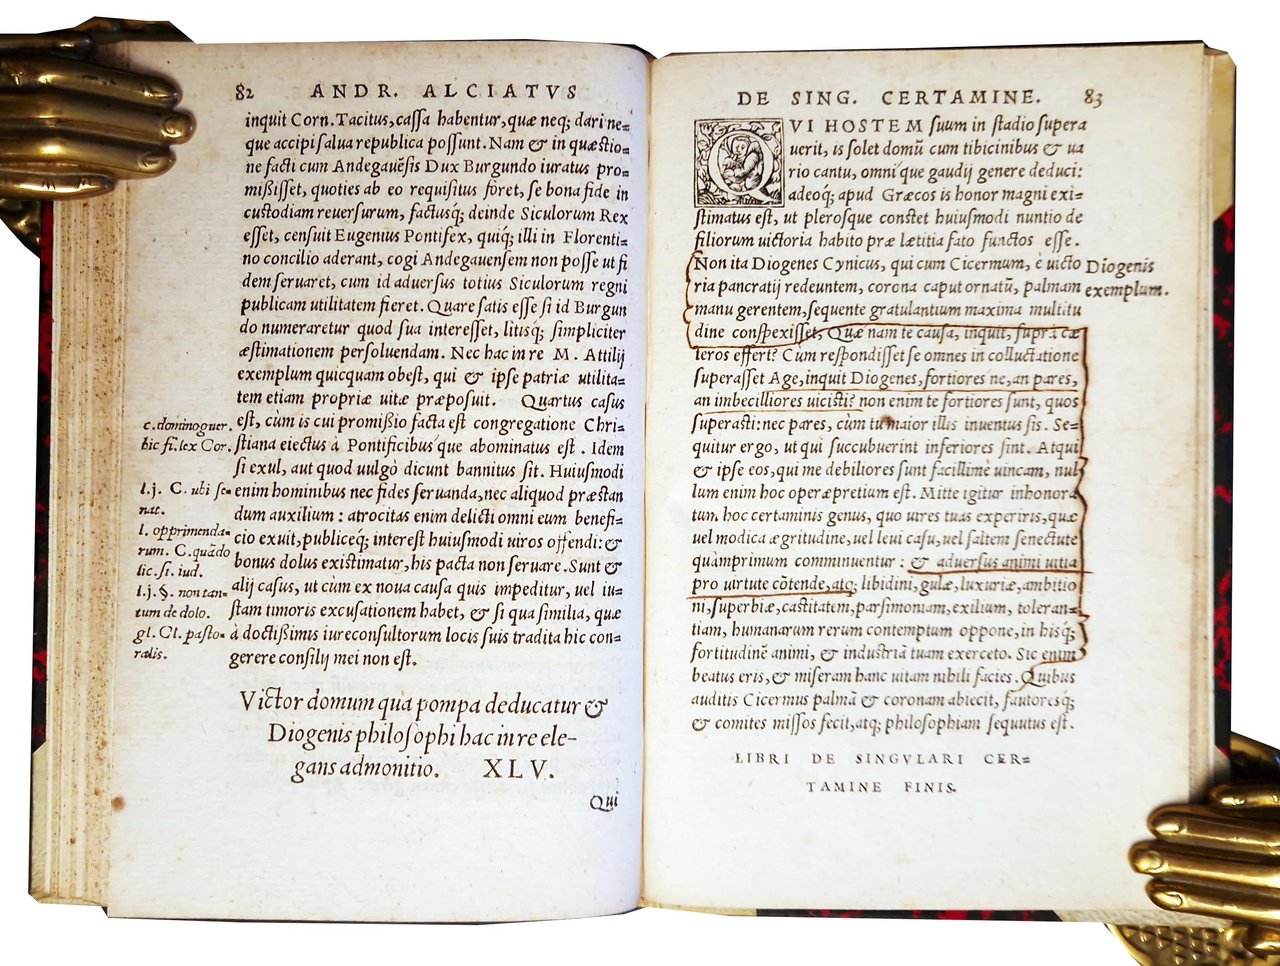 82 ANDR. ALCIATVS
inquit Corn. Tacitus, caſſa habentur, quæ neq; dari ne=
que accipi ſalua republica poſſunt. Nam & in quæſtio=
ne facti cum Andegauēſis Dux Burgundo iuratus pro=
miſiſſet, quoties ab eo requiſitus foret, ſe bona fide in
cuſtodiam reuerſurum, factusq; deinde Siculorum Rex
eſſet, cenſuit Eugenius Pontifex, quiq; illi in Florenti=
no concilio aderant, cogi Andegauenſem non poſſe ut fi
dem ſeruaret, cum id aduerſus totius Siculorum regni
publicam utilitatem fieret. Quare ſatis eſſe ſi id Burgun
do numeraretur quod ſua intereſſet, litisq; ſimpliciter
æſtimationem perſoluendam. Nec hac in re M. Attilij
exemplum quicquam obeſt, qui & ipſe patriæ utilita=
tem etiam propriæ uitæ præpoſuit. Quartus caſus
eſt, cùm is cui promiſſio facta eſt congregatione Chri=
ſtiana eiectus à Pontificibus'que abominatus eſt. Idem
ſi exul, aut quod uulgò dicunt bannitus ſit. Huiuſmodi
enim hominibus nec fides ſeruanda, nec aliquod præſtan
dum auxilium: atrocitas enim delicti omni eum benefi=
cio exuit, publiceq; intereſt huiuſmodi uiros offendi: &
bonus dolus exiſtimatur, his pacta non ſeruare. Sunt &
alij caſus, ut cùm ex noua cauſa quis impeditur, uel iu=
ſtam timoris excuſationem habet, & ſi qua ſimilia, quæ
à doctißimis iureconſultorum locis ſuis tradita hic con=
gerere conſilij mei non eſt.
c. domino guer.
hic fi. lex Cor.
l.j. C. ubi ſe=
nat.
l. opprimenda=
rum. C. quādo
lic. ſi. iud.
l.j. §. non tan=
tum de dolo.
gl. Cl. paſto=
ralis.
Victor domum quà pompa deducatur &
Diogenis philoſophi hac in re ele=
gans admonitio. XLV.
Qui
DE SING. CERTAMINE. 83
QVI HOSTEM ſuum in ſtadio ſupera
uerit, is ſolet domū cum tibicinibus & ua
rio cantu, omni'que gaudij genere deduci:
adeoq; apud Græcos is honor magni exi=
ſtimatus eſt, ut pleroſque conſtet huiuſmodi nuntio de
filiorum uictoria habito præ lætitia fato functos eſſe.
Non ita Diogenes Cynicus, qui cum Cicermum, è uicto
ria pancratij redeuntem, corona caput ornatū, palmam
manu gerentem, ſequente gratulantium maxima multitu
dine conſpexiſſet, Quæ nam te cauſa, inquit, ſupra cæ
teros effert? Cùm reſpondiſſet ſe omnes in colluctatione
ſuperaſſet Age, inquit Diogenes, fortiores ne, an pares,
an imbecilliores uiciſti? non enim te fortiores ſunt, quos
ſuperaſti: nec pares, cùm tu maior illis inuentus ſis. Se=
quitur ergo, ut qui ſuccubuerint inferiores ſint. Atqui
& ipſe eos, qui me debiliores ſunt facillimè uincam, nul
lum enim hoc operæpretium eſt. Mitte igitur inhonora
tum hoc certaminis genus, quo uires tuas experiris, quæ
uel modica ægritudine, uel leui caſu, uel ſaltem ſenectute
quàmprimum comminuentur: & aduerſus animi uitia
pro uirtute cōtende, atq; libidini, gulæ, luxuriæ, ambitio
ni, ſuperbiæ, caſtitatem, parſimoniam, exilium, toleran=
tiam, humanarum rerum contemptum oppone, in hisq;
fortitudinē animi, & induſtriā tuam exerceto. Sic enim
beatus eris, & miſeram hanc uitam nihili facies. Quibus
auditis Cicermus palmā & coronam abiecit, fautoresq;
& comites miſſos fecit, atq; philoſophiam ſequutus eſt.
Diogenis
exemplum.
LIBRI DE SINGVLARI CER=
TAMINE FINIS.